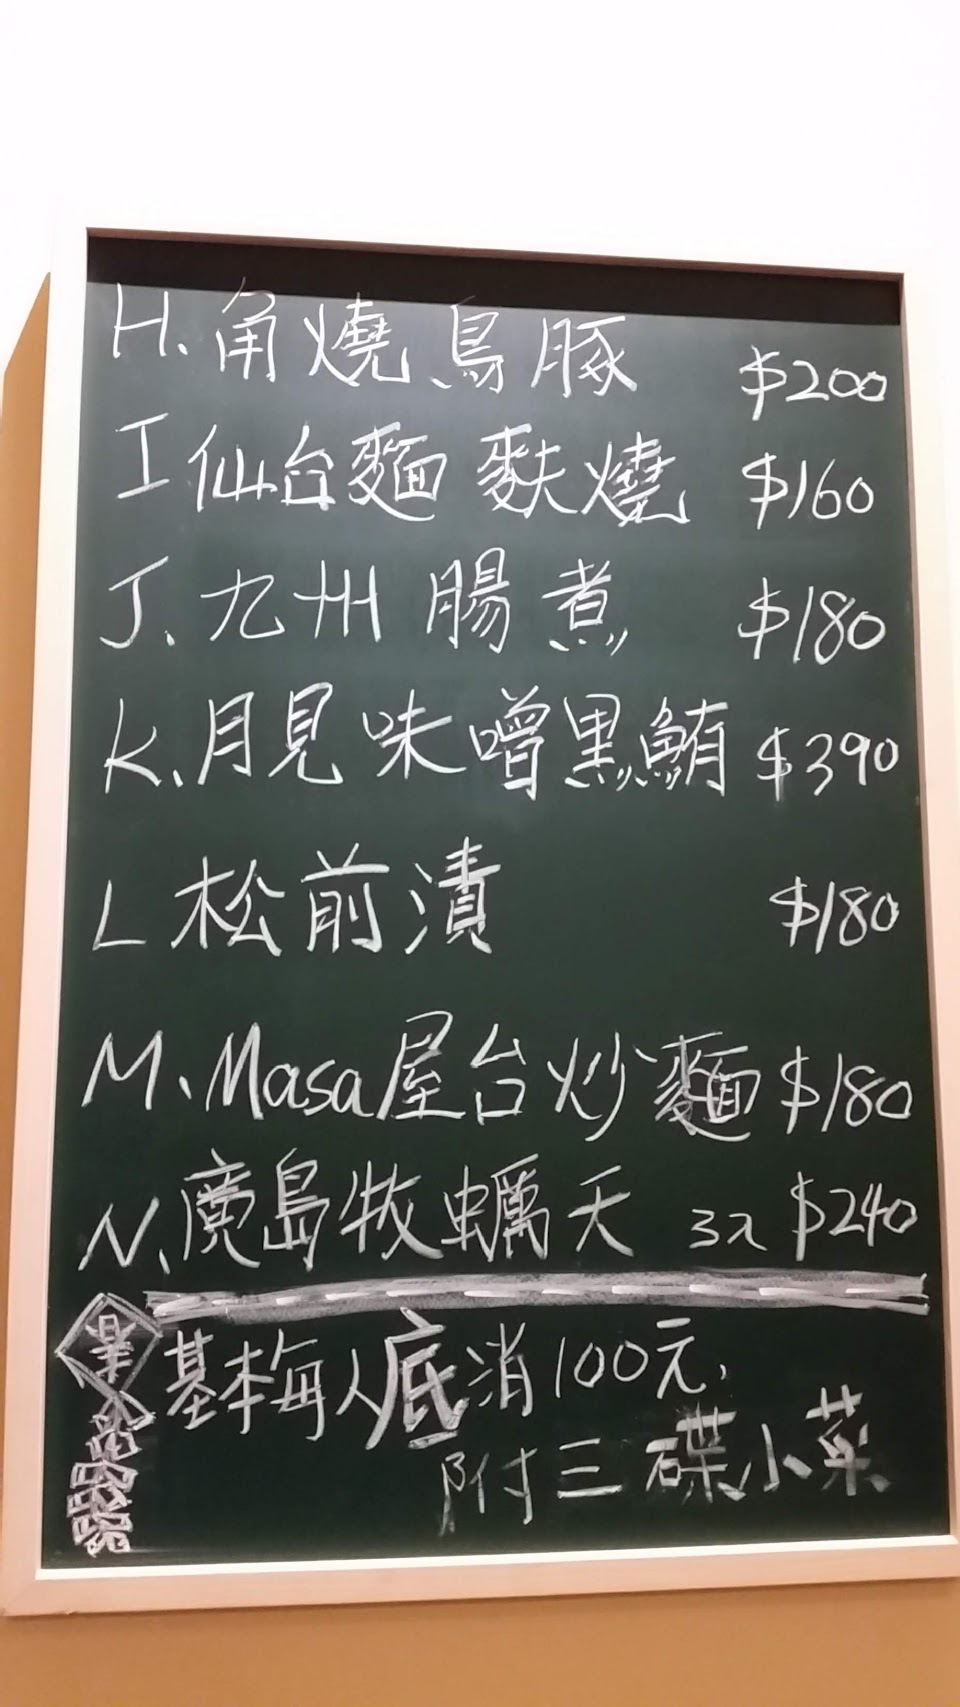 H. 角燒鳥豚 $200
I 仙台麵麩燒 $160
J. 九州腸煮 $180
K. 月見味噌黑鮪 $390
L 松前漬 $180
M. Masa屋台炒麵 $180
N. 廣島牧蠣天 3入 $240
春
基本每人底消100元,
附三碟小菜